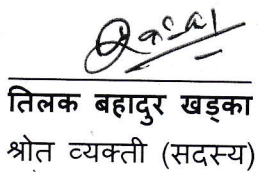 तिलक बहादुर खड्का
श्रोत व्यक्ती (सदस्य)